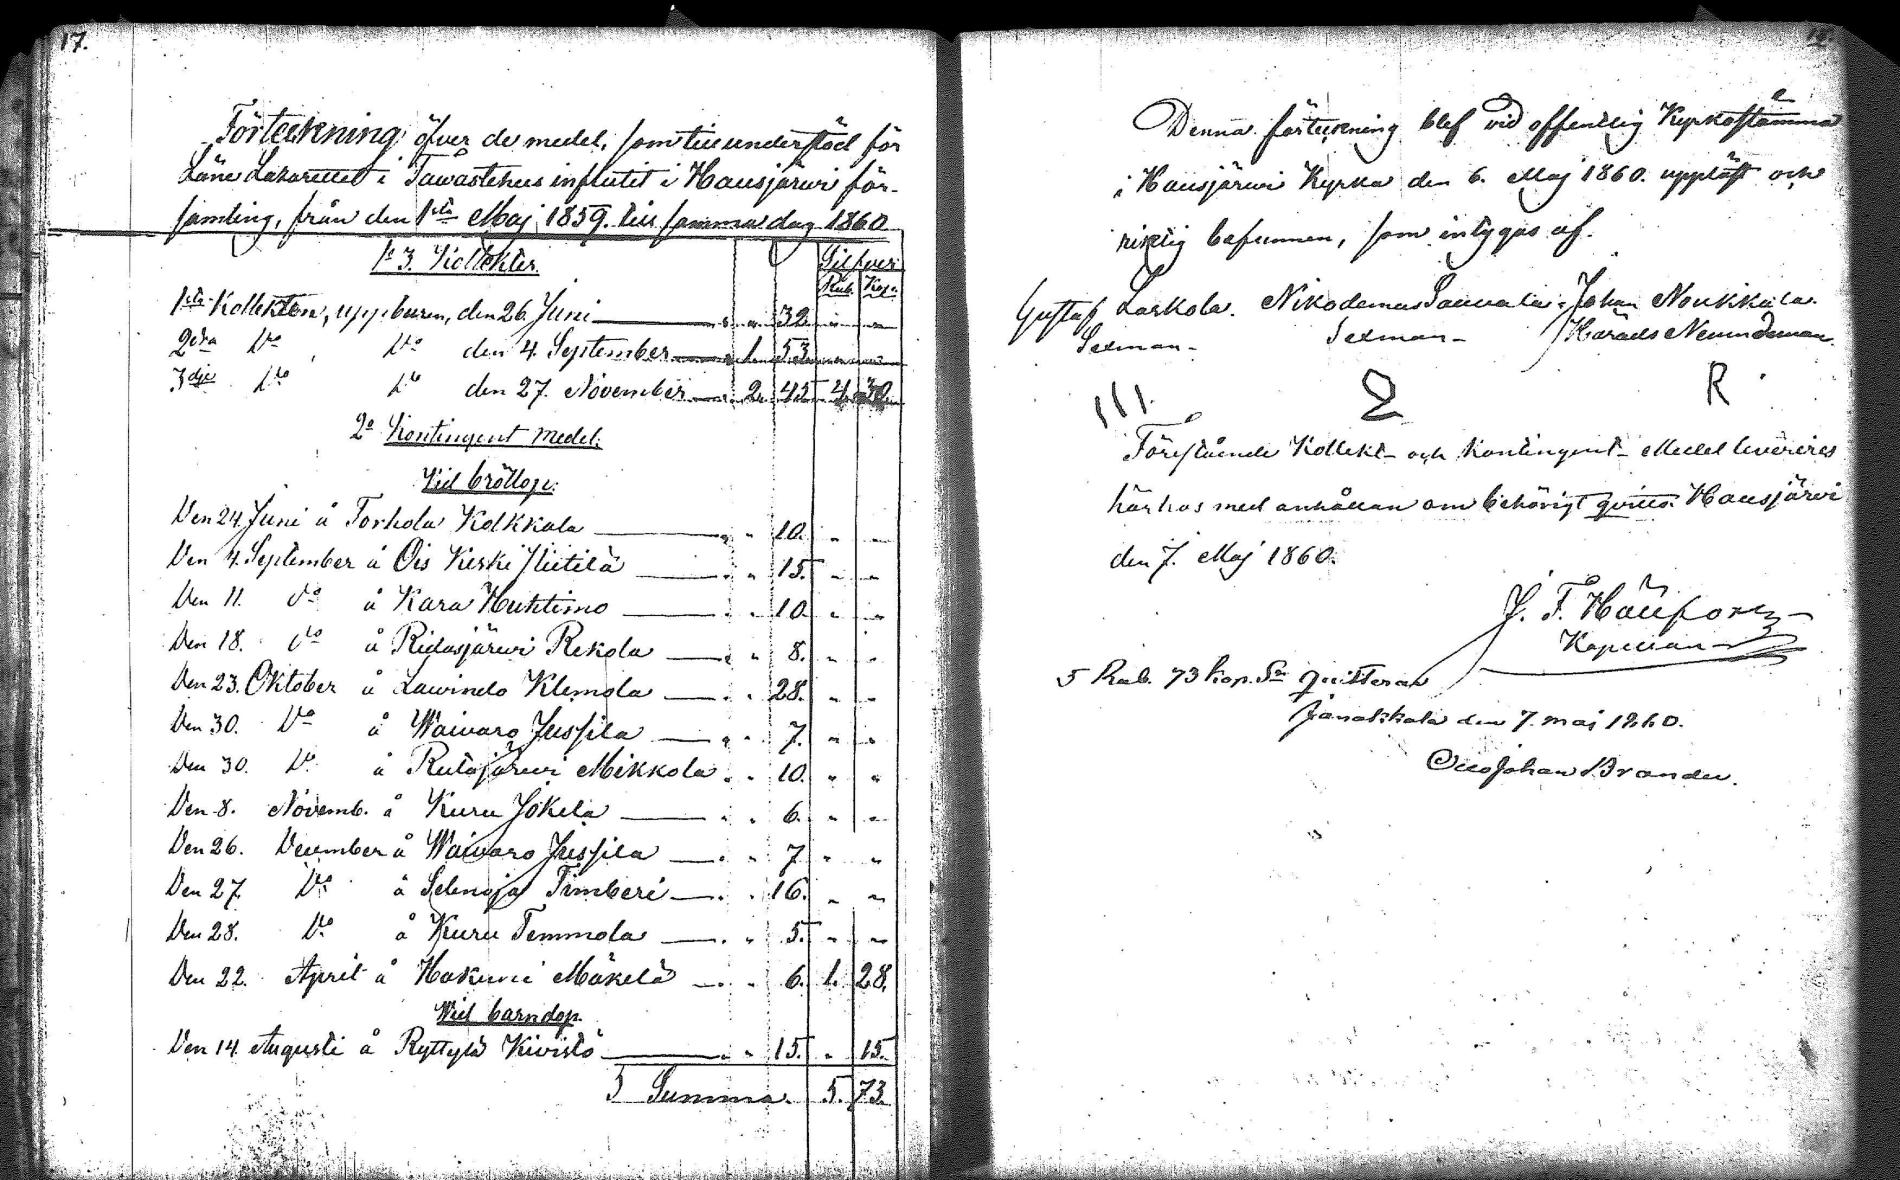 17.
Förteckning öfver de medel, som till understöd för
Läns Lazarettet i Tawastehus influtit i Hausjärwi för-
samling, från den 1sta Maj 1859. till samma dag 1860
Silfver
1o 3. Kollekter.
Rub. Kop.
1sta Kollekten, uppburen, den 26 Juni — " " 32 " "
2dra Do Do den 4. September — " 1. 53 " "
3dje Do Do den 27. November — " 2. 45 4. 30.
2o Kontingent medel.
Vid bröllop.
Den 24 Juni å Torhola Kolkkala — " " 10. " "
Den 4. September å Ois Keski — " " 15. " "
Den 11. do å Kara Huhtimo — " " 10. " "
Den 18. do å Ridasjärwi Rekola — " " 8. " "
Den 23. Oktober å Lawindo Klemola — " " 28. " "
Den 30. Do å Waiwaro Jussila — " " 7. " "
Den 30. Do å Mikkola " " 10. " "
Den 8. Novemb. å Kuru Jokela — " " 6. " "
Den 26. December å Waiwaro Jussila — " " 7 " "
Den 27. Do å Selenoja Timberi — " " 16. " "
Den 28. Do å Kuru Temmola — " " 5. " "
Den 22. April å Hakuni Mäkelä — " " 6. 1. 28.
Vid barndop.
Den 14. Augusti å Ryttylä Kivistö — " " 15. " 15.
Summa. 5. 73.
Denna förteckning blef vid offentlig Kyrkostämma
i Hausjärwi Kyrka den 6. Maj 1860. uppläst och
riktig befunnen, som intygas af.
Gustaf Laskola. Nikodemus Sauvala. Johan Noukkala.
Sexman. Sexman. Härads Nemndeman.
III. 2 R
Förestående Kollekt- och Kontingent- Medel levereres
härhos med anhållan om behörigt qvitto. Hausjärvi
den 7. Maj 1860.
J. F. Häufors
Kapellan
5 Rub. 73 kop. Sr quitteras
Janakkala den 7. maj 1860.
Otto Johan Brander.